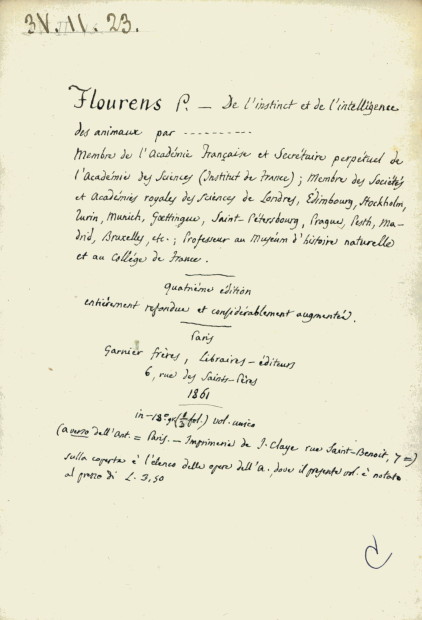 3V. 11. 23.
Flourens P. — De l'instinct et de l'intelligence
des animaux par ----------
Membre de l'Académie Française et Secrétaire perpétuel de
l'Académie des Sciences (Institut de France) ; Membre des Sociétés
et Académies royales des Sciences de Londres, Édimbourg, Stockholm,
Turin, Munich, Gœttingue, Saint-Pétersbourg, Prague, Pesth, Ma-
drid, Bruxelles, etc. ; Professeur au Muséum d'histoire naturelle
et au Collége de France.
Quatrième édition
entièrement refondue et considérablement augmentée.
Paris
Garnier frères, Libraires-éditeurs
6, rue des Saints-Pères
1861
in-18° gr. vol. unico
(a verso dell'Ant. = Paris. — Imprimerie de J. Claye rue Saint-Benoit, 7 =)
sulla coperta è l'elenco delle opere dell'A., dove il presente vol. è notato
al prezzo di L. 3,50